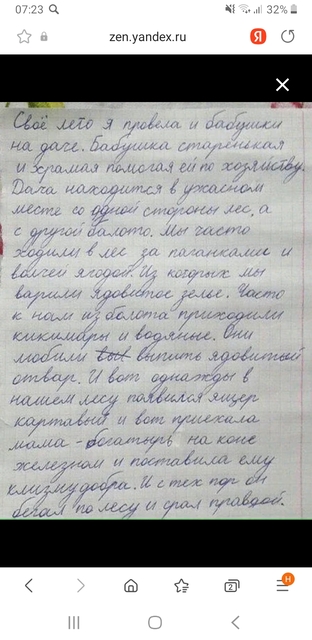 07:23
32%
zen.yandex.ru
Я
Своё лето я провела и бабушки
на даче. Бабушка старенькая
и храмая помогая ей по хозяйству.
Дача находится в ужасном
месте со одной стороны лес, а
с другой балото. Мы часто
ходили в лес за паганками и
волчей ягодой. Из которых мы
варили ядовитое зелье. Часто
к нам из болота приходили
кикимары и водяные. Они
любили выпить ядовитый
отвар. И вот однажды в
нашем лесу появился ящер
картавый и вот приехала
мама - богатырь на коне
железном и поставила ему
клизму добра. И с тех пор он
бегал по лесу и срал правдой.
2
Н